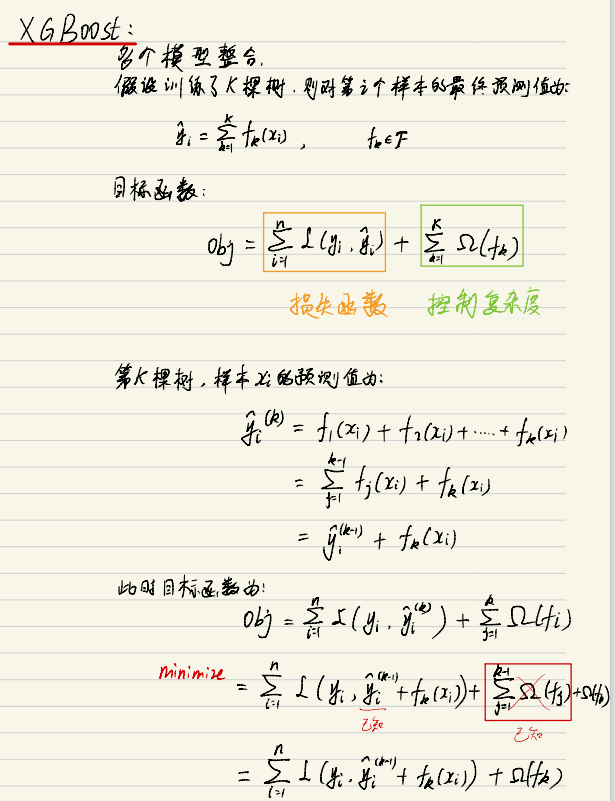 XGBoost:
各个模型整合.
假设训练了K棵树,则对第i个样本的最终预测值为:
ŷᵢ = Σₖ₌₁ᴷ fₖ(xᵢ) , fₖ∈F
目标函数:
Obj = Σᵢ₌₁ⁿ L(yᵢ, ŷᵢ) + Σₖ₌₁ᴷ Ω(fₖ)
损失函数 控制复杂度
第K棵树,样本xᵢ的预测值为:
ŷᵢ⁽ᵏ⁾ = f₁(xᵢ) + f₂(xᵢ) + ..... + fₖ(xᵢ)
= Σⱼ₌₁ᵏ⁻¹ fⱼ(xᵢ) + fₖ(xᵢ)
= ŷᵢ⁽ᵏ⁻¹⁾ + fₖ(xᵢ)
此时目标函数为:
Obj = Σᵢ₌₁ⁿ L(yᵢ, ŷᵢ⁽ᵏ⁾) + Σⱼ₌₁ᵏ Ω(fᵢ)
minimize = Σᵢ₌₁ⁿ L(yᵢ, ŷᵢ⁽ᵏ⁻¹⁾ + fₖ(xᵢ)) + Σⱼ₌₁ᵏ⁻¹ Ω(fⱼ) + Ω(fₖ)
已知 已知
= Σᵢ₌₁ⁿ L(yᵢ, ŷᵢ⁽ᵏ⁻¹⁾ + fₖ(xᵢ)) + Ω(fₖ)